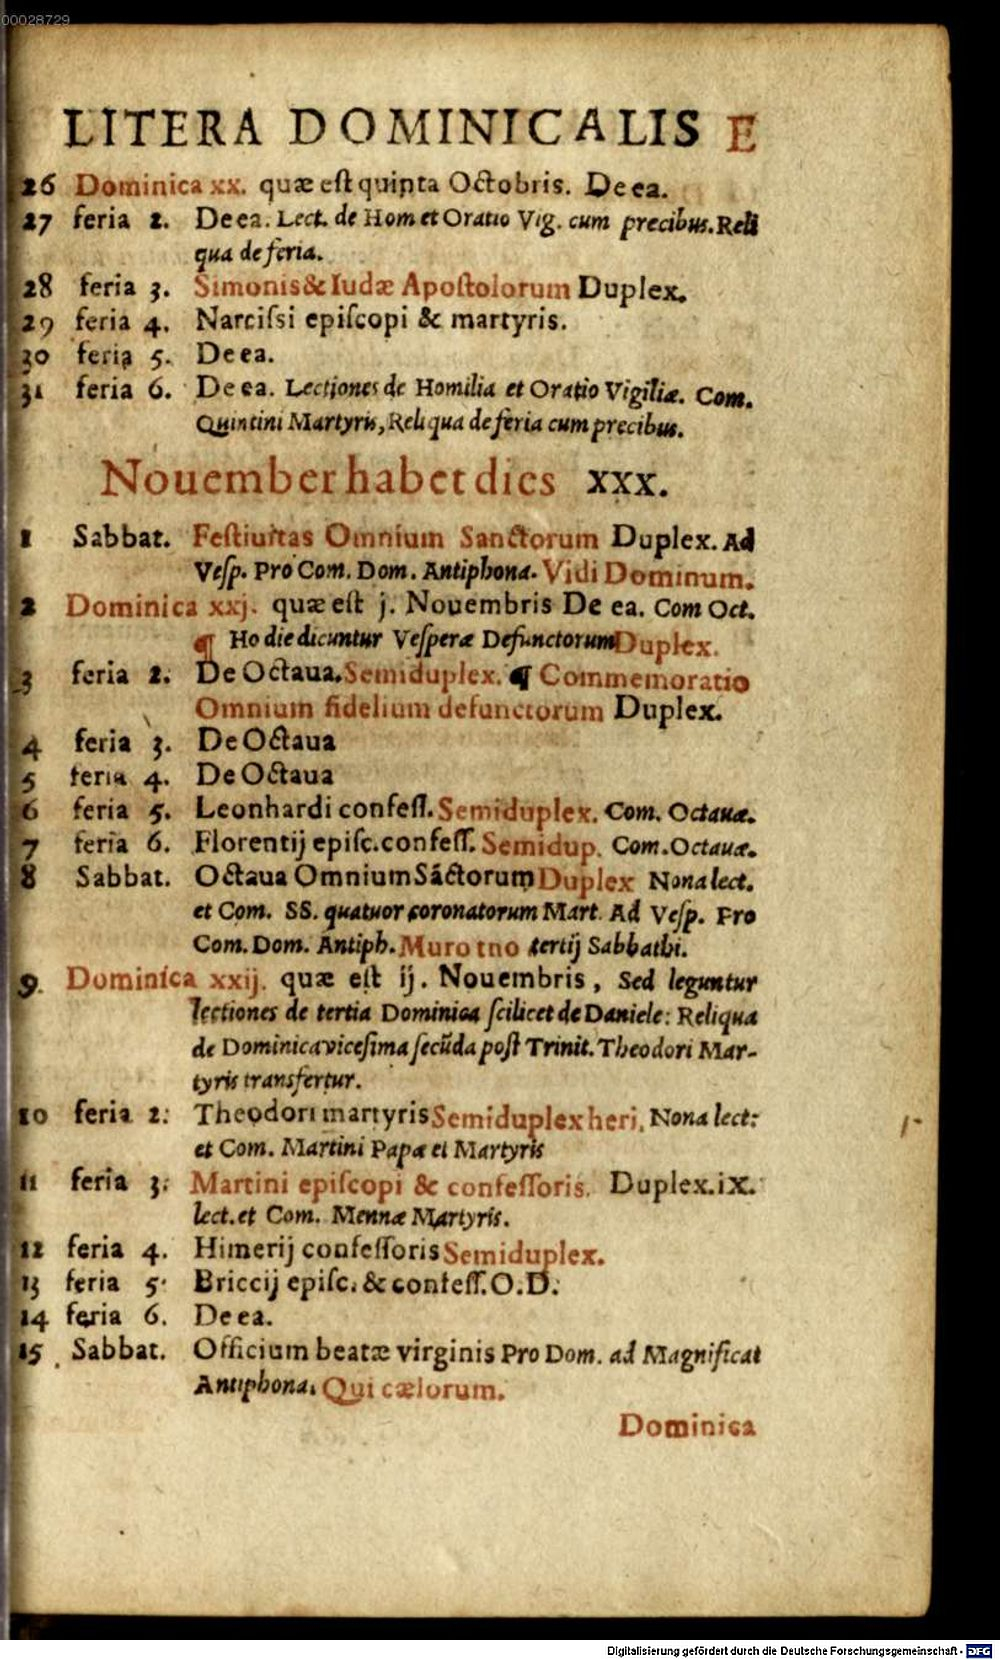 00028729
LITERA DOMINICALIS E
26 Dominica xx. quæ eſt quinta Octobris. De ea.
27 feria 2. De ea. Lect. de Hom et Oratio Vig. cum precibus. Reli
qua de feria.
28 feria 3. Simonis & Iudæ Apoſtolorum Duplex.
29 feria 4. Narciſsi epiſcopi & martyris.
30 feria 5. De ea.
31 feria 6. De ea. Lectiones de Homilia et Oratio Vigiliæ. Com.
Quintini Martyris, Reliqua de feria cum precibus.
Nouember habet dies xxx.
1 Sabbat. Feſtiuitas Omnium Sanctorum Duplex. Ad
Veſp. Pro Com. Dom. Antiphona. Vidi Dominum.
2 Dominica xxj. quæ eſt j. Nouembris De ea. Com Oct.
¶ Hodie dicuntur Veſperæ Defunctorum Duplex.
3 feria 2. De Octaua. Semiduplex. ¶ Commemoratio
Omnium fidelium defunctorum Duplex.
4 feria 3. De Octaua
5 feria 4. De Octaua
6 feria 5. Leonhardi confeſſ. Semiduplex. Com. Octauæ.
7 feria 6. Florentij epiſc. confeſſ. Semidup. Com. Octauæ.
8 Sabbat. Octaua Omnium Sãctorum Duplex Nona lect.
et Com. SS. quatuor coronatorum Mart. Ad Veſp. Pro
Com. Dom. Antiph. Muro tno tertij Sabbathi.
9. Dominica xxij. quæ eſt ij. Nouembris, Sed leguntur
lectiones de tertia Dominica ſcilicet de Daniele: Reliqua
de Dominica viceſima ſecũda poſt Trinit. Theodori Mar-
tyris transfertur.
10 feria 2: Theodori martyris Semiduplex heri. Nona lect:
et Com. Martini Papæ et Martyris
11 feria 3: Martini epiſcopi & confeſſoris. Duplex. ix.
lect. et Com. Mennæ Martyris.
12 feria 4. Himerij confeſſoris Semiduplex.
13 feria 5. Briccij epiſc. & confeſſ. O. D.
14 feria 6. De ea.
15 Sabbat. Officium beatæ virginis Pro Dom. ad Magnificat
Antiphona. Qui cælorum.
Dominica
Digitalisierung gefördert durch die Deutsche Forschungsgemeinschaft - DFG